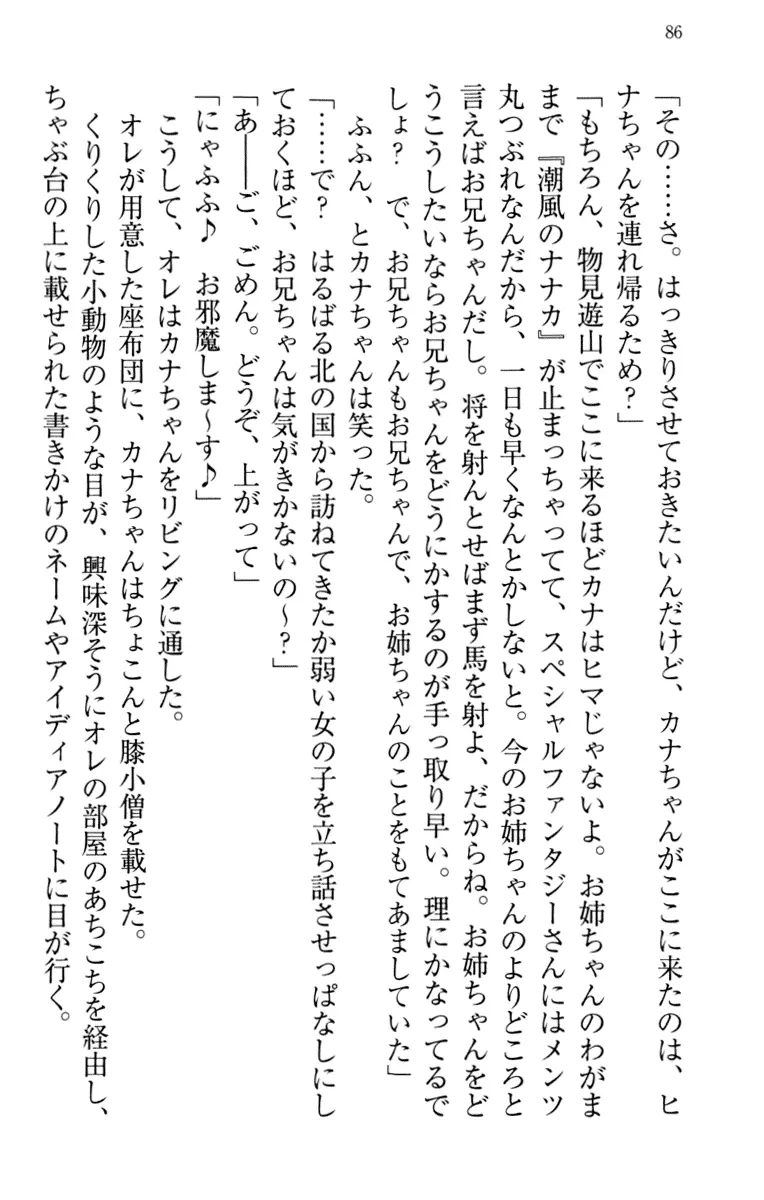 86
「その……さ。はっきりさせておきたいんだけど、カナちゃんがここに来たのは、ヒ
ナちゃんを連れ帰るため？」
「もちろん、物見遊山でここに来るほどカナはヒマじゃないよ。お姉ちゃんのわがま
まで『潮風のナナカ』が止まっちゃってて、スペシャルファンタジーさんにはメンツ
丸つぶれなんだから、一日も早くなんとかしないと。今のお姉ちゃんのよりどころと
言えばお兄ちゃんだし。将を射んとせばまず馬を射よ、だからね。お姉ちゃんをど
うこうしたいならお兄ちゃんをどうにかするのが手っ取り早い。理にかなってるで
しょ？　で、お兄ちゃんもお兄ちゃんで、お姉ちゃんのことをもてあましていた」
ふふん、とカナちゃんは笑った。
「……で？　はるばる北の国から訪ねてきたか弱い女の子を立ち話させっぱなしにし
ておくほど、お兄ちゃんは気がきかないの～？」
「あ――ご、ごめん。どうぞ、上がって」
「にゃふふ♪　お邪魔しま～す♪」
こうして、オレはカナちゃんをリビングに通した。
オレが用意した座布団に、カナちゃんはちょこんと膝小僧を載せた。
くりくりした小動物のような目が、興味深そうにオレの部屋のあちこちを経由し、
ちゃぶ台の上に載せられた書きかけのネームやアイディアノートに目が行く。